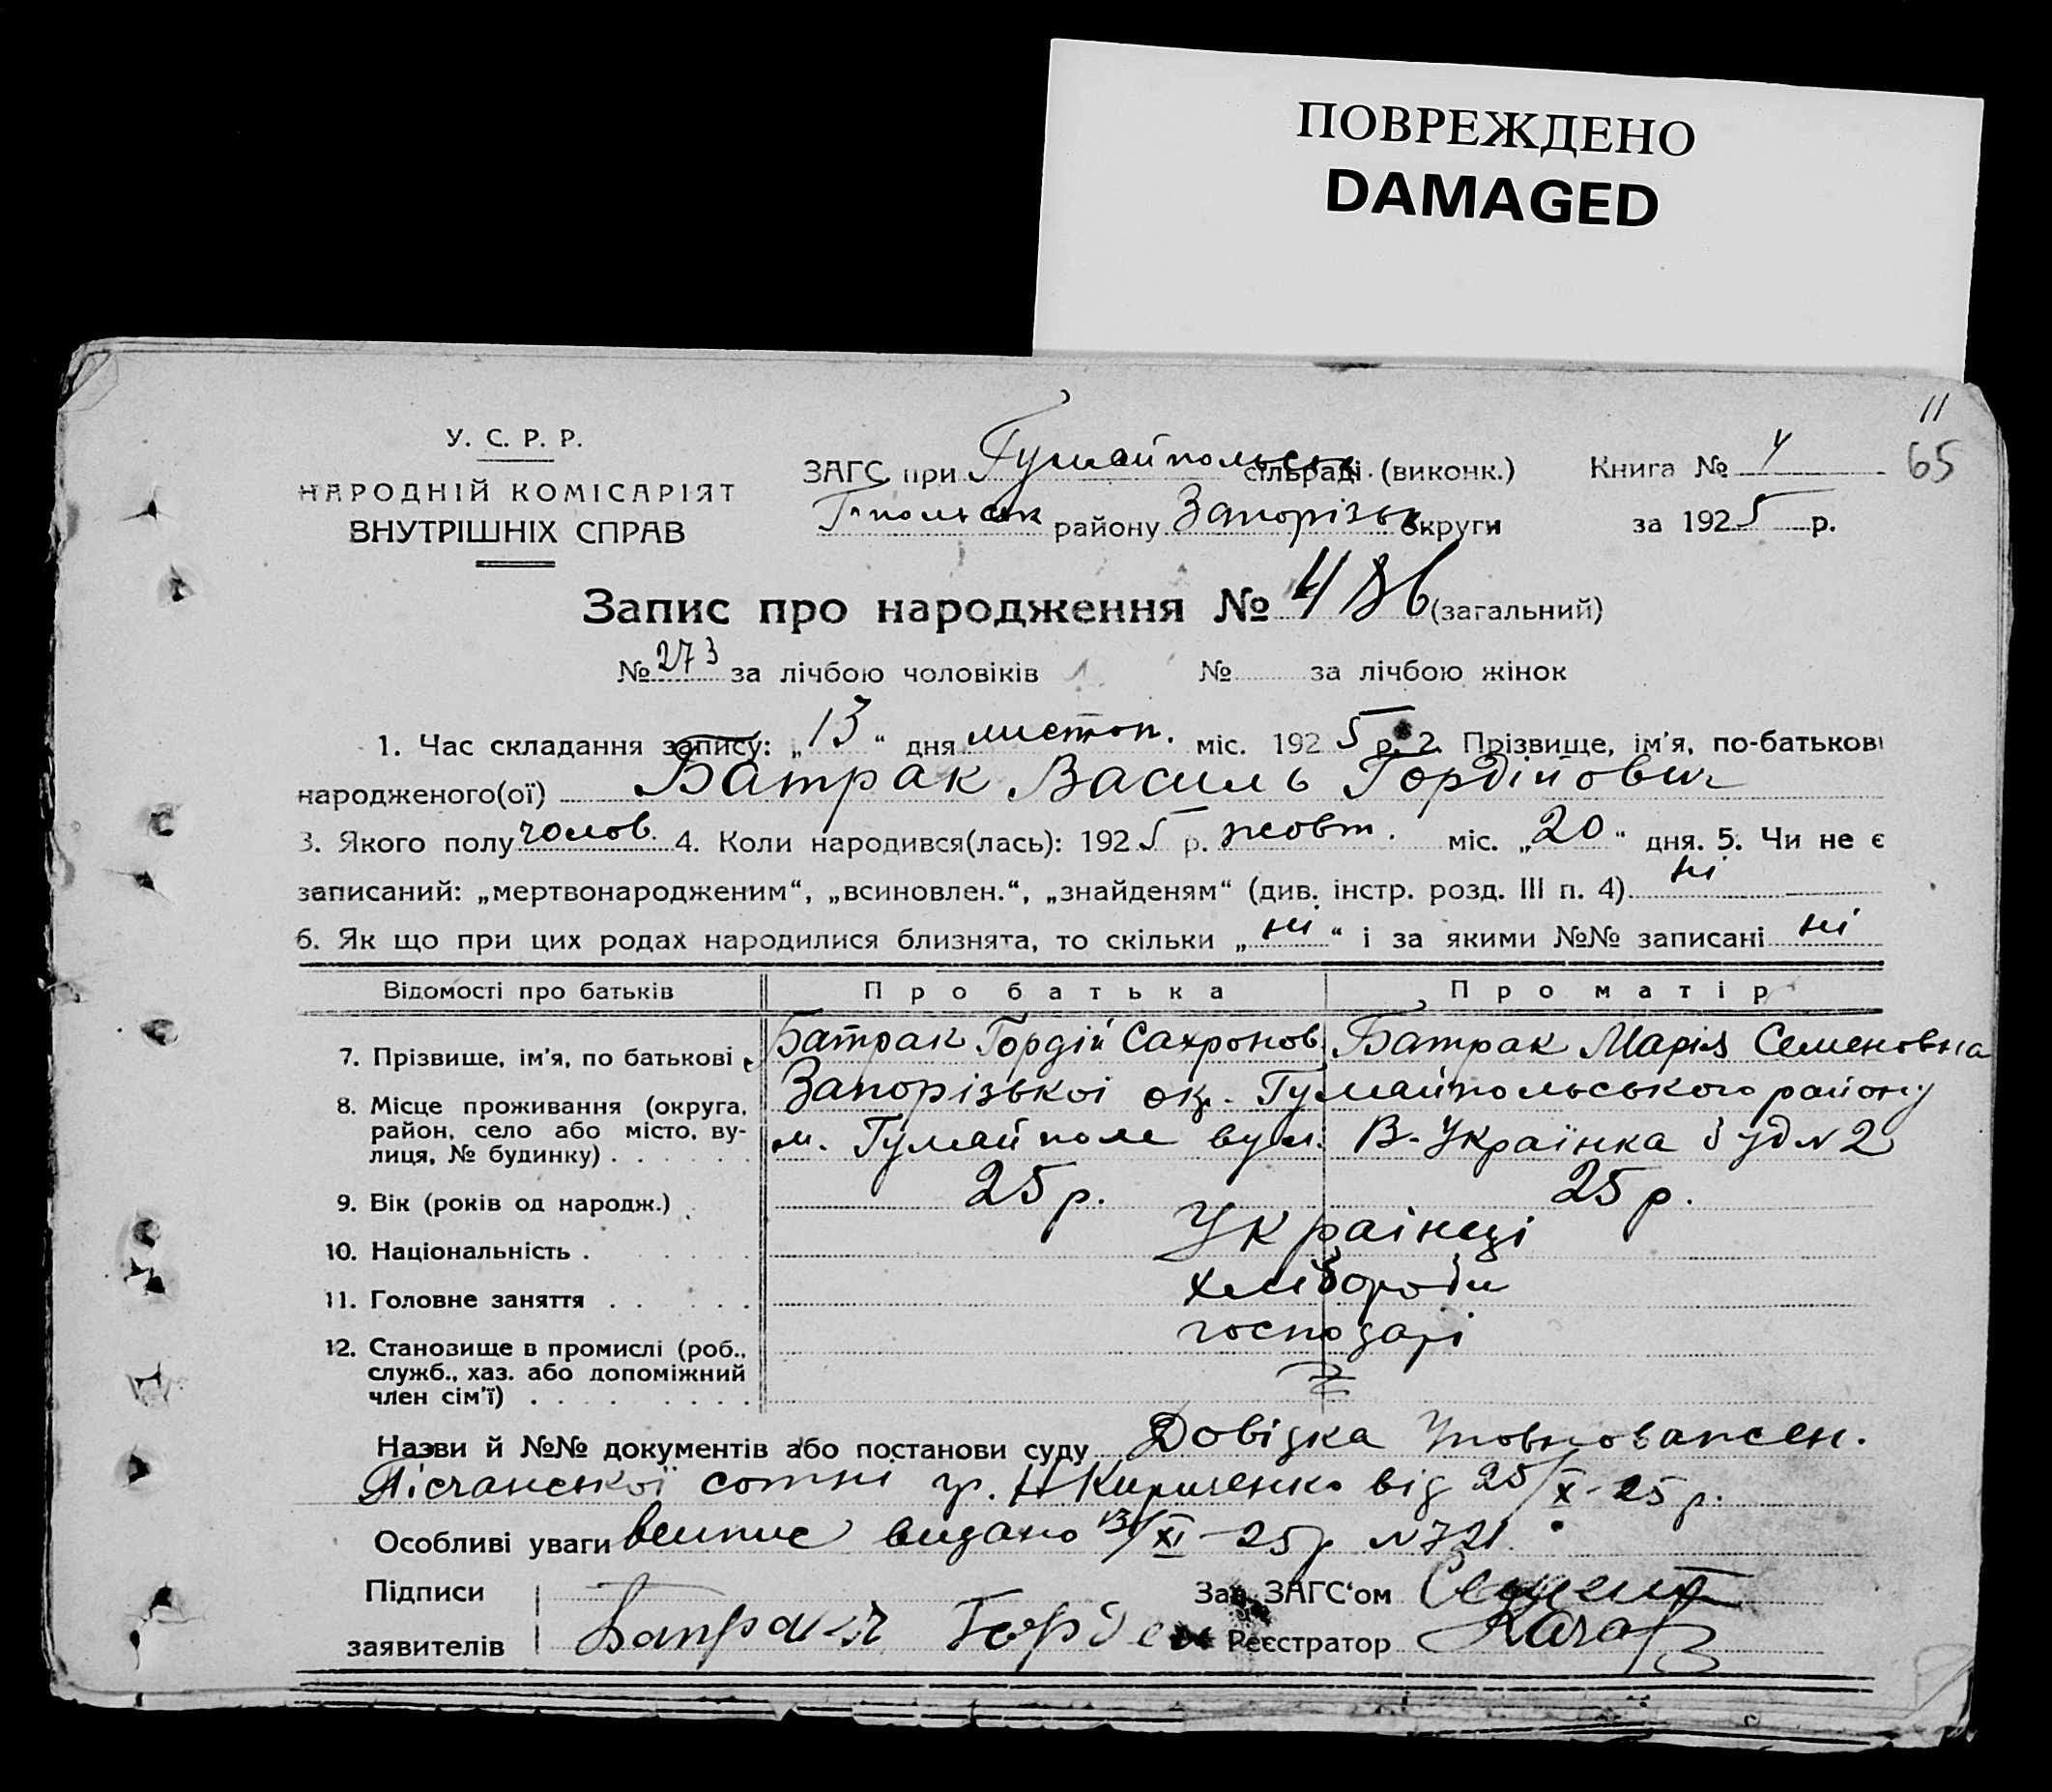 ПОВРЕЖДЕНО
DAMAGED
11
65
У. С. Р. Р.
НАРОДНІЙ КОМІСАРІЯТ
ВНУТРІШНІХ СПРАВ
ЗАГС при Гуляйпольськ. сільраді (виконк.) Книга № 4
Г-польськ району Запорізьк округи за 1925 р.
Запис про народження № 486 (загальний)
№ 273 за лічбою чоловіків № за лічбою жінок
1. Час складання запису: „13“ дня листоп. міс. 1925 р. 2. Прізвище, ім'я, по-батькові
народженого(ої) Батрак Василь Гордійович
3. Якого полу чолов. 4. Коли народився(лась): 1925 р. жовт. міс. „20“ дня. 5. Чи не є
записаний: „мертвонародженим“, „всиновлен.“, „знайденям“ (див. інстр. розд. III п. 4) ні
6. Як що при цих родах народилися близнята, то скільки „ні“ і за якими №№ записані ні
Відомості про батьків Про батька Про матір
7. Прізвище, ім'я, по батькові Батрак Гордій Сахронов. Батрак Марія Семеновна
8. Місце проживання (округа, район, село або місто, вулиця, № будинку) Запорізької окр. Гуляйпольського району
м. Гуляйполе вул. В-Українка буд N 2
9. Вік (років од народж.) 25 р. 25 р.
10. Національність Українці
11. Головне заняття хлібороби
12. Становище в промислі (роб., служб., хаз. або допоміжний член сім'ї) господарі
Назви й №№ документів або постанови суду Довідка Уповноважен.
Пісчанської сотні гр. Кириченко від 25/X-25 р.
Особливі уваги випис видано 13/XI-25 р N 721.
Підписи Зав. ЗАГС'ом
заявителів Батрак Гордей Реєстратор